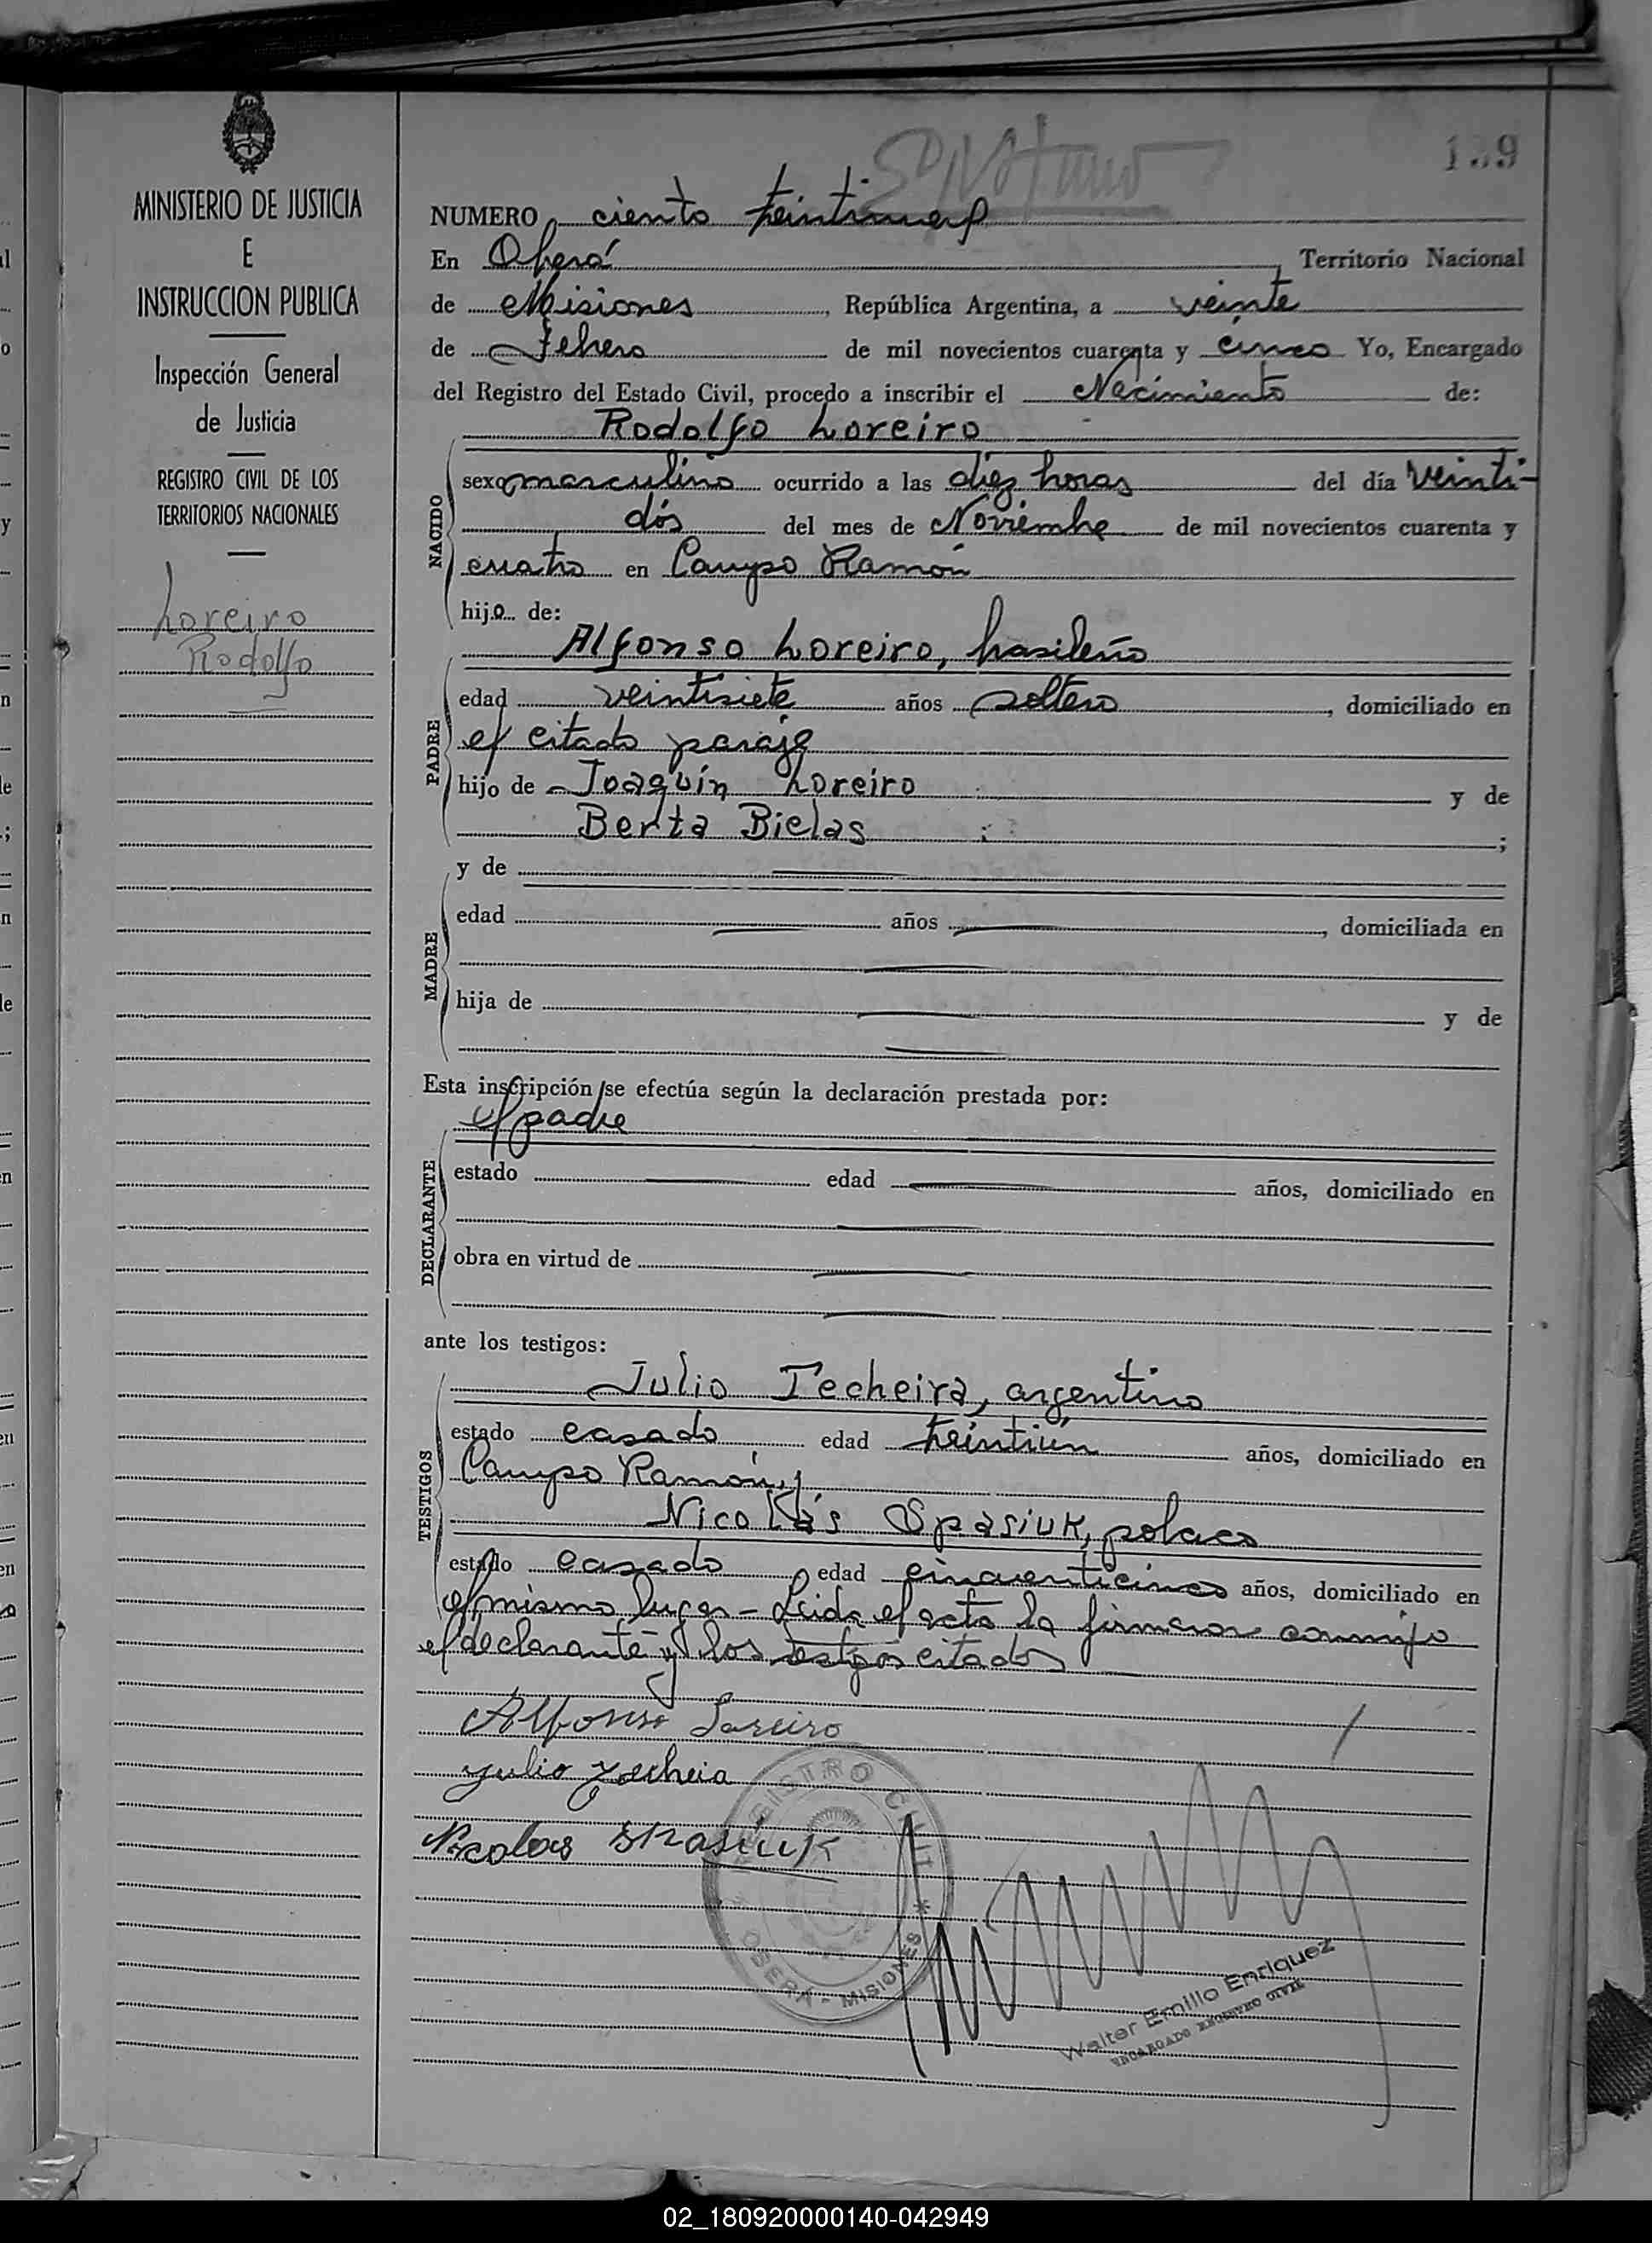 139
NUMERO ciento treintinueve
En Oberá, Territorio Nacional
de Misiones, República Argentina, a veinte
de Febrero de mil novecientos cuarenta y cinco Yo, Encargado
del Registro del Estado Civil, procedo a inscribir el Nacimiento de:
Rodolfo Loreiro
NACIDO
sexo masculino ocurrido a las diez horas del día veinti-
dós del mes de Noviembre de mil novecientos cuarenta y
cuatro en Campo Ramón
hijo de:
PADRE
Alfonso Loreiro, brasileño
edad veintisiete años soltero, domiciliado en
el citado paraje
hijo de Joaquín Loreiro y de
Berta Bielas ;
MADRE
y de
edad años , domiciliada en
hija de y de
Esta inscripción se efectúa según la declaración prestada por:
el padre
DECLARANTE
estado edad años, domiciliado en
obra en virtud de
ante los testigos:
TESTIGOS
Julio Techeira, argentino
estado casado edad treintiún años, domiciliado en
Campo Ramón y
Nicolás Spasiuk, polaco
estado casado edad cincuenticinco años, domiciliado en
el mismo lugar - Leida el acta la firmaron conmigo
el declarante y los testigos citados
Alfonso Loreiro
Julio Techeia
Nicolas Spasiuk
REGISTRO CIVIL
OBERA - MISIONES
Walter Emilio Enriquez
ENCARGADO REGISTRO CIVIL
MINISTERIO DE JUSTICIA
E
INSTRUCCION PUBLICA
Inspección General
de Justicia
REGISTRO CIVIL DE LOS
TERRITORIOS NACIONALES
Loreiro
Rodolfo
02_180920000140-042949